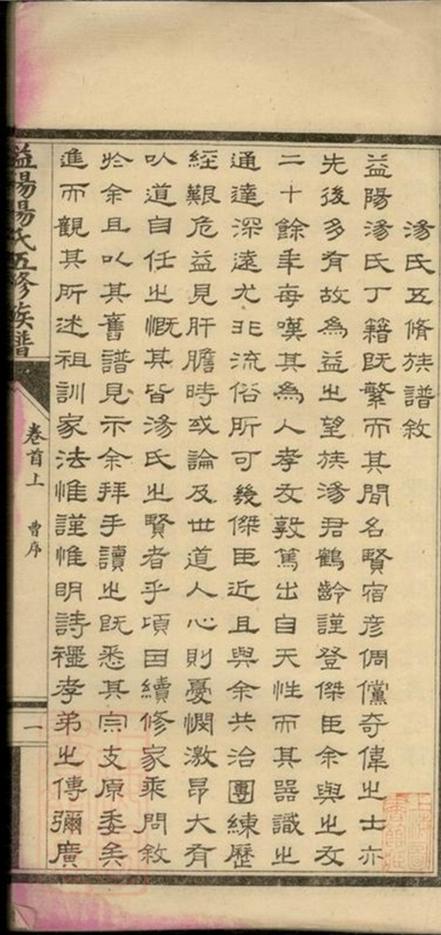 湯氏五脩族譜敘
益陽湯氏丁籍旣繁而其間名賢宿彥倜儻奇偉㞢士亦
先後多有故為益㞢望族湯君鶴齡謹登傑臣余與㞢友
二十餘年每嘆其為人孝友敦篤出自天性而其器識㞢
通達深遠尤非流俗所可幾傑臣近且與余共治團練歷
經艱危益見肝膽時或論及世道人心則憂憫激昂大有
㕥道自任㞢慨其皆湯氏㞢賢者乎頃因續修家乘問敘
於余且㕥其舊譜見示余拜手讀㞢旣悉其宗支原委矣
進而觀其所述祖訓家法惟謹惟明詩禮孝弟㞢傳彌廣
益陽湯氏五修族譜
卷首上
曹序
一